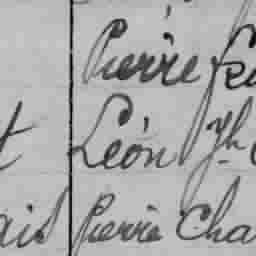 Pierre
t Léon Jh
ais Pierre Cha